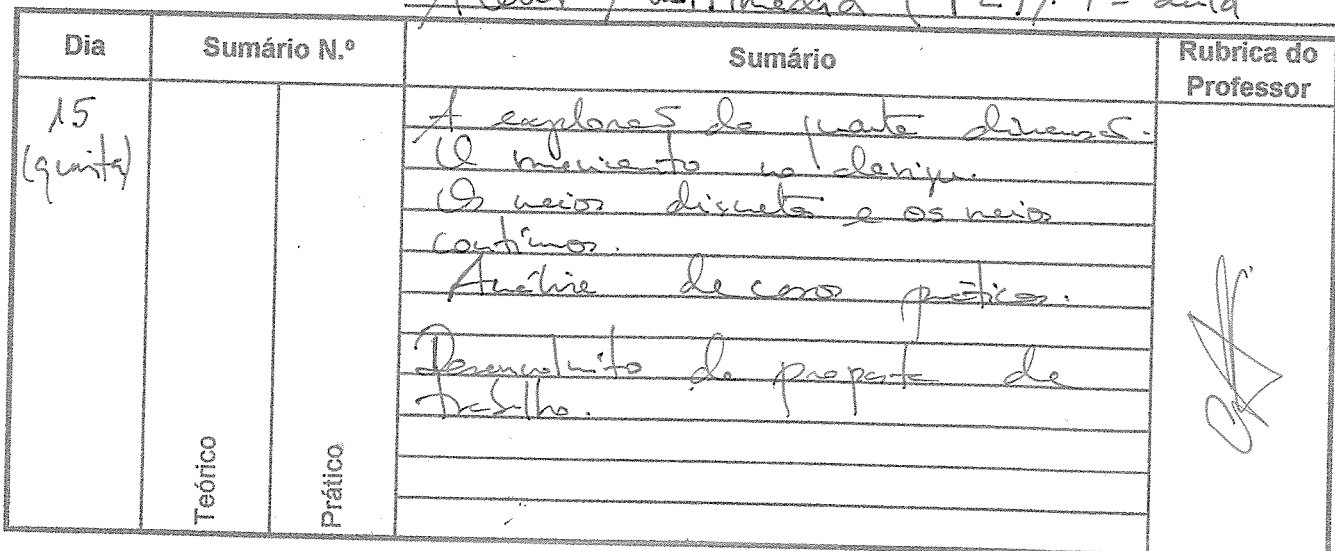 multimédia ( aula
Dia
Sumário N.º
Sumário
Rubrica do
Professor
15
(quinta)
A exploraç da quarta dimensã.
O movimento no design.
Os meios discretos e os meios
contínuos.
Análise de casos práticos.
Desenvolvimento da proposta de
trabalho.
Teórico
Prático